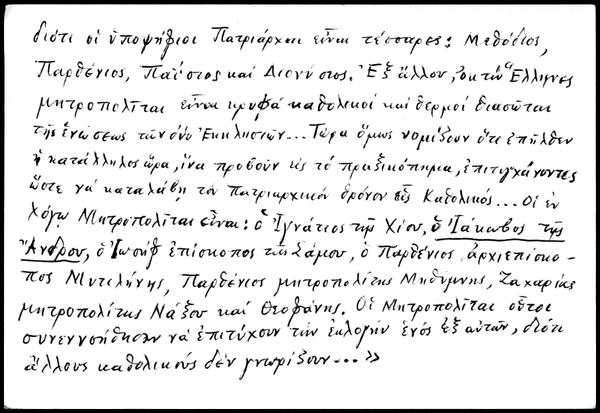 διότι οἱ ὑποψήφιοι Πατριάρχαι εἶναι τέσσαρες: Μεθόδιος,
Παρθένιος, Παΐσιος καὶ Διονύσιος. Ἐξ ἄλλου, ὀκτὼ Ἕλληνες
μητροπολῖται εἶναι κρυφά καθολικοί καὶ θερμοί θιασῶται
τῆς ἑνώσεως τῶν δύο Ἐκκλησιῶν... Τώρα ὅμως νομίζουν ὅτι ἐπῆλθεν
ἡ κατάλληλος ὥρα, ἵνα προβοῦν εἰς τό πραξικόπημα, ἐπιτυγχάνοντες
ὥστε νά καταλάβῃ τόν Πατριαρχικόν θρόνον εἷς Καθολικός... Οἱ ἐν
λόγῳ Μητροπολῖται εἶναι: ὁ Ἰγνάτιος τῆς Χίου, ὁ Ἰάκωβος τῆς
Ἄνδρου, ὁ Ἰωσήφ ἐπίσκοπος τῆς Σάμου, ὁ Παρθένιος ἀρχιεπίσκο-
πος Μυτιλήνης, Παρθένιος μητροπολίτης Μηθύμνης, Ζαχαρίας
μητροπολίτης Νάξου καί Θεοφάνης. Οἱ Μητροπολῖται οὗτοι
συνεννοήθησαν νά ἐπιτύχουν τήν ἐκλογήν ἑνός ἐξ αὐτῶν, διότι
ἄλλους καθολικούς δέν γνωρίζουν...»